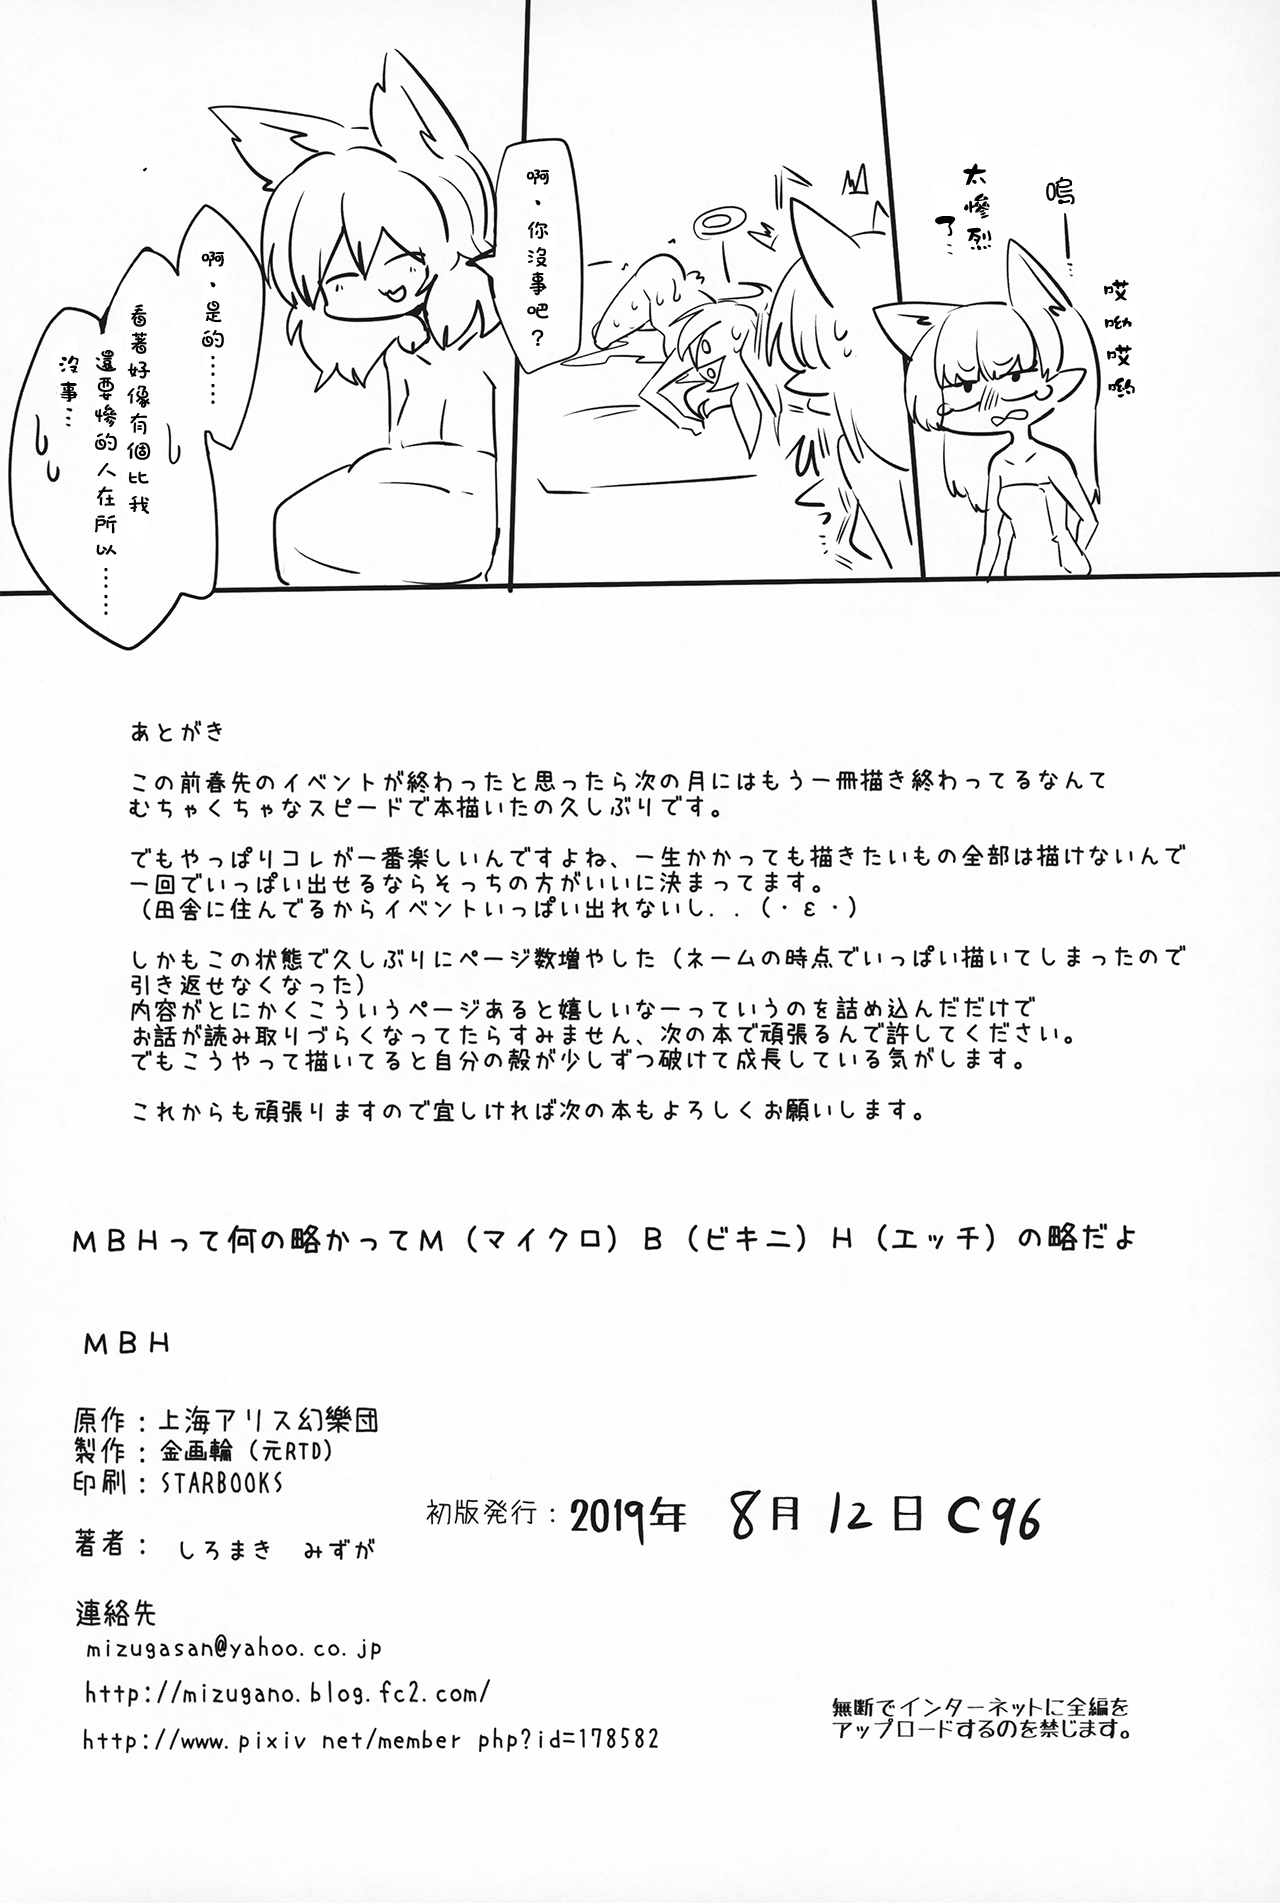 嗚——…
太慘烈
了…
哎呦哎喲
ひくっ
啊，你沒事吧？
啊，是的……
看著好像有個比我
還要慘的人在所以……
沒事…
あとがき
この前春先のイベントが終わったと思ったら次の月にはもう一冊描き終わってるなんて
むちゃくちゃなスピードで本描いたの久しぶりです。
でもやっぱりコレが一番楽しいんですよね、一生かかっても描きたいもの全部は描けないんで
一回でいっぱい出せるならそっちの方がいいに決まってます。
（田舎に住んでるからイベントいっぱい出れないし．．（・ε・）
しかもこの状態で久しぶりにページ数増やした（ネームの時点でいっぱい描いてしまったので
引き返せなくなった）
内容がとにかくこういうページあると嬉しいなーっていうのを詰め込んだだけで
お話が読み取りづらくなってたらすみません、次の本で頑張るんで許してください。
でもこうやって描いてると自分の殻が少しずつ破けて成長している気がします。
これからも頑張りますので宜しければ次の本もよろしくお願いします。
MBHって何の略かってM（マイクロ）B（ビキニ）H（エッチ）の略だよ
MBH
原作：上海アリス幻樂団
製作：金画輪（元RTD）
印刷：STARBOOKS
初版発行：2019年 8月12日 C96
著者： しろまき みずが
連絡先
mizugasan@yahoo.co.jp
http://mizugano.blog.fc2.com/
http://www.pixiv net/member php?id=178582
無断でインターネットに全編を
アップロードするのを禁じます。